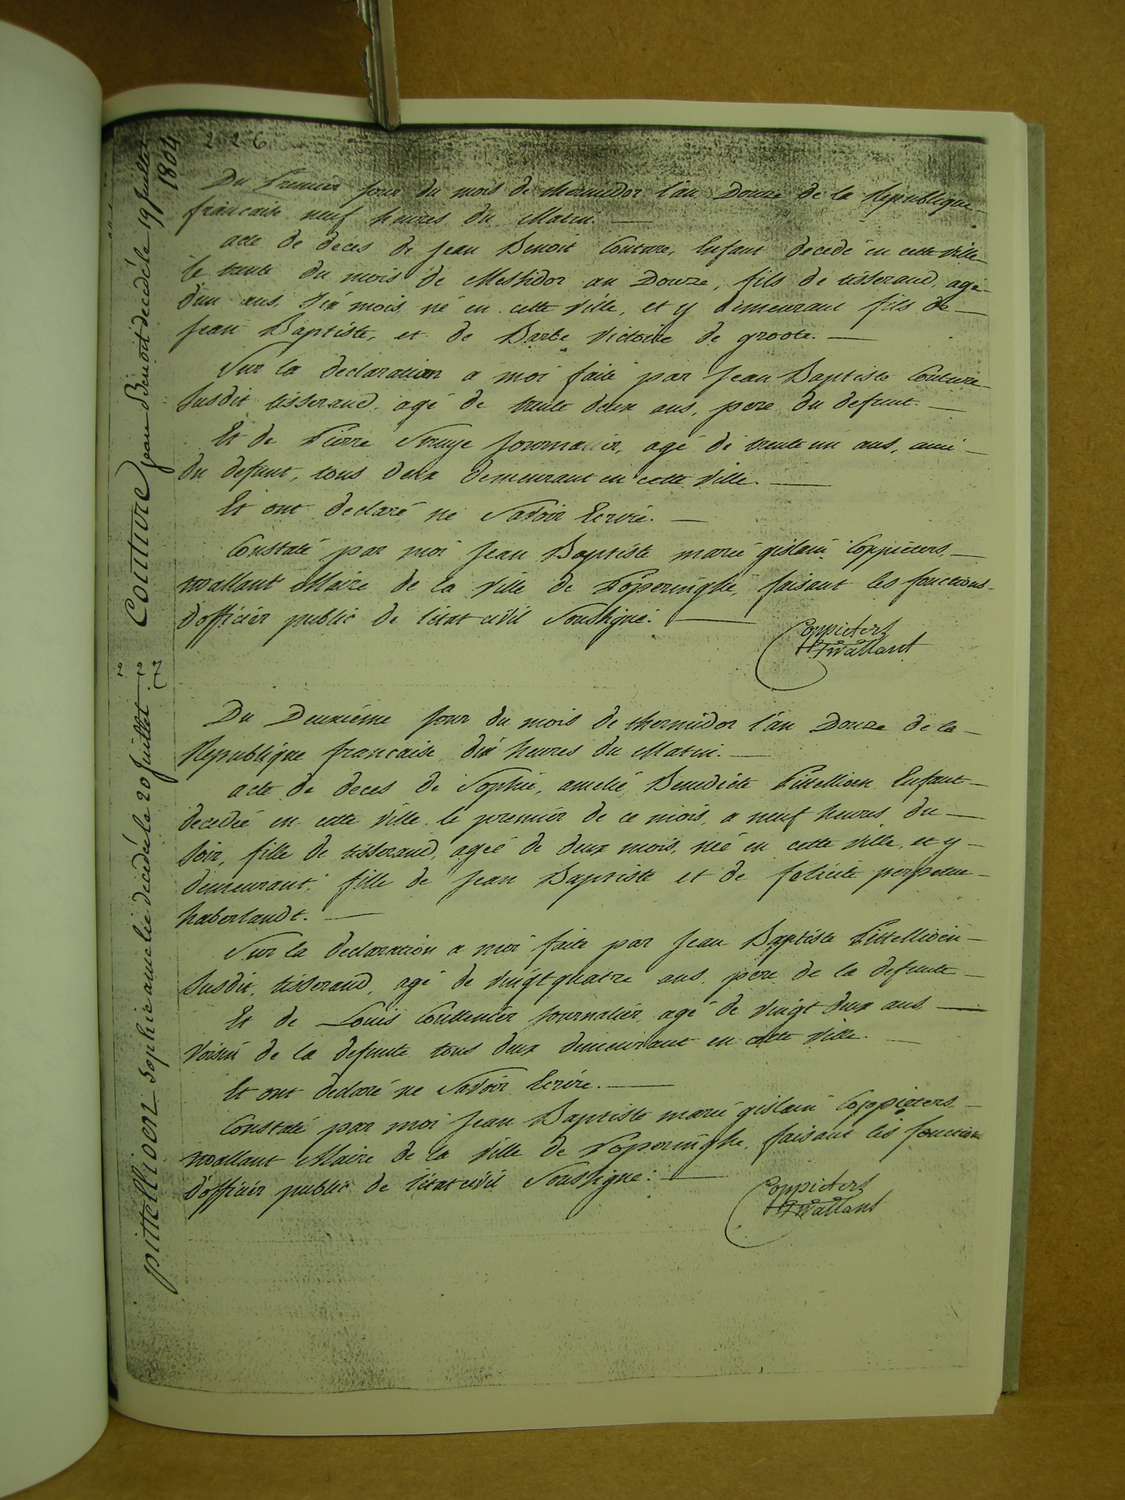 226
Du Premier jour du mois de thermidor l'an Douze de la Republique
francaise neuf heures du Matin.
acte de deces de Jean Benoit Couture, Enfant decedé en cette ville
le trente du mois de Messidor an Douze, fils de tisserand, agé
d'un ans, dix mois, né en cette ville, et y demeurant fils de
Jean Baptiste, et de Barbe Victoire de groote.
Sur la declaration a moi faite par Jean Baptiste Couture
Susdit tisserand, agé de trente deux ans, pere du defunt.
Et de Pierre Struye Journalier, agé de trente un ans, ami
du defunt, tous deux demeurant en cette ville.
Et ont declaré ne Savoir Ecrire.
Constaté par moi Jean Baptiste marie gislain Coppieters
wallant Maire de la ville de Poperinghe, faisant les fonctions
d'officier public de l'etat civil Soussigné:
Coppieters
Wallant
couture jean Benoit decédé le 19 Juillet
1804
227
Du Deuxiéme jour du mois de thermidor l'an Douze de la
Republique francaise, dix heures du Matin.
acte de deces de Sophie, amelie, Benedicte Pittellioen, Enfant
decedée en cette ville le premier de ce mois, a neuf heures du
Soir, fille de tisserand, agée de deux mois, née en cette ville, et y
demeurant, fille de Jean Baptiste et de felicite perpetue
haberlandt.
Sur la declaration a moi faite par Jean Baptiste Pittellioen
Susdit, tisserand, agé de vingt quatre ans, pere de la defunte
Et de Louis Coutteniér Journalier, agé de vingt deux ans
Voisin de la defunte tous deux demeurant en cette ville.
Et ont declaré ne Savoir Ecrire.
Constaté par moi Jean Baptiste marie gislain Coppieters
wallant Maire de la Ville de Poperinghe, faisant les fonctions
d'officier public de l'etat civil Soussigné:
Coppieters
Wallant
pittellioen Sophie amelie decédée le 20 Juillet